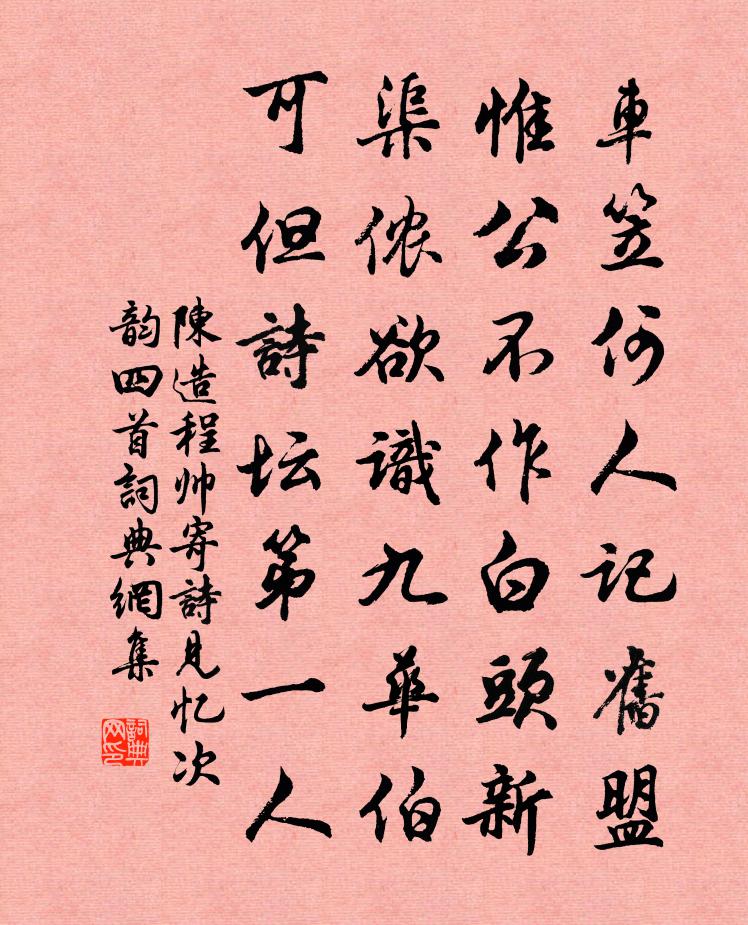 車笠何人記舊盟
惟公不作白頭新
渠侬欲識九華伯
可但詩坛第一人
陳造程帅寄詩見忆次
韵四首詞典網集
詞典网印